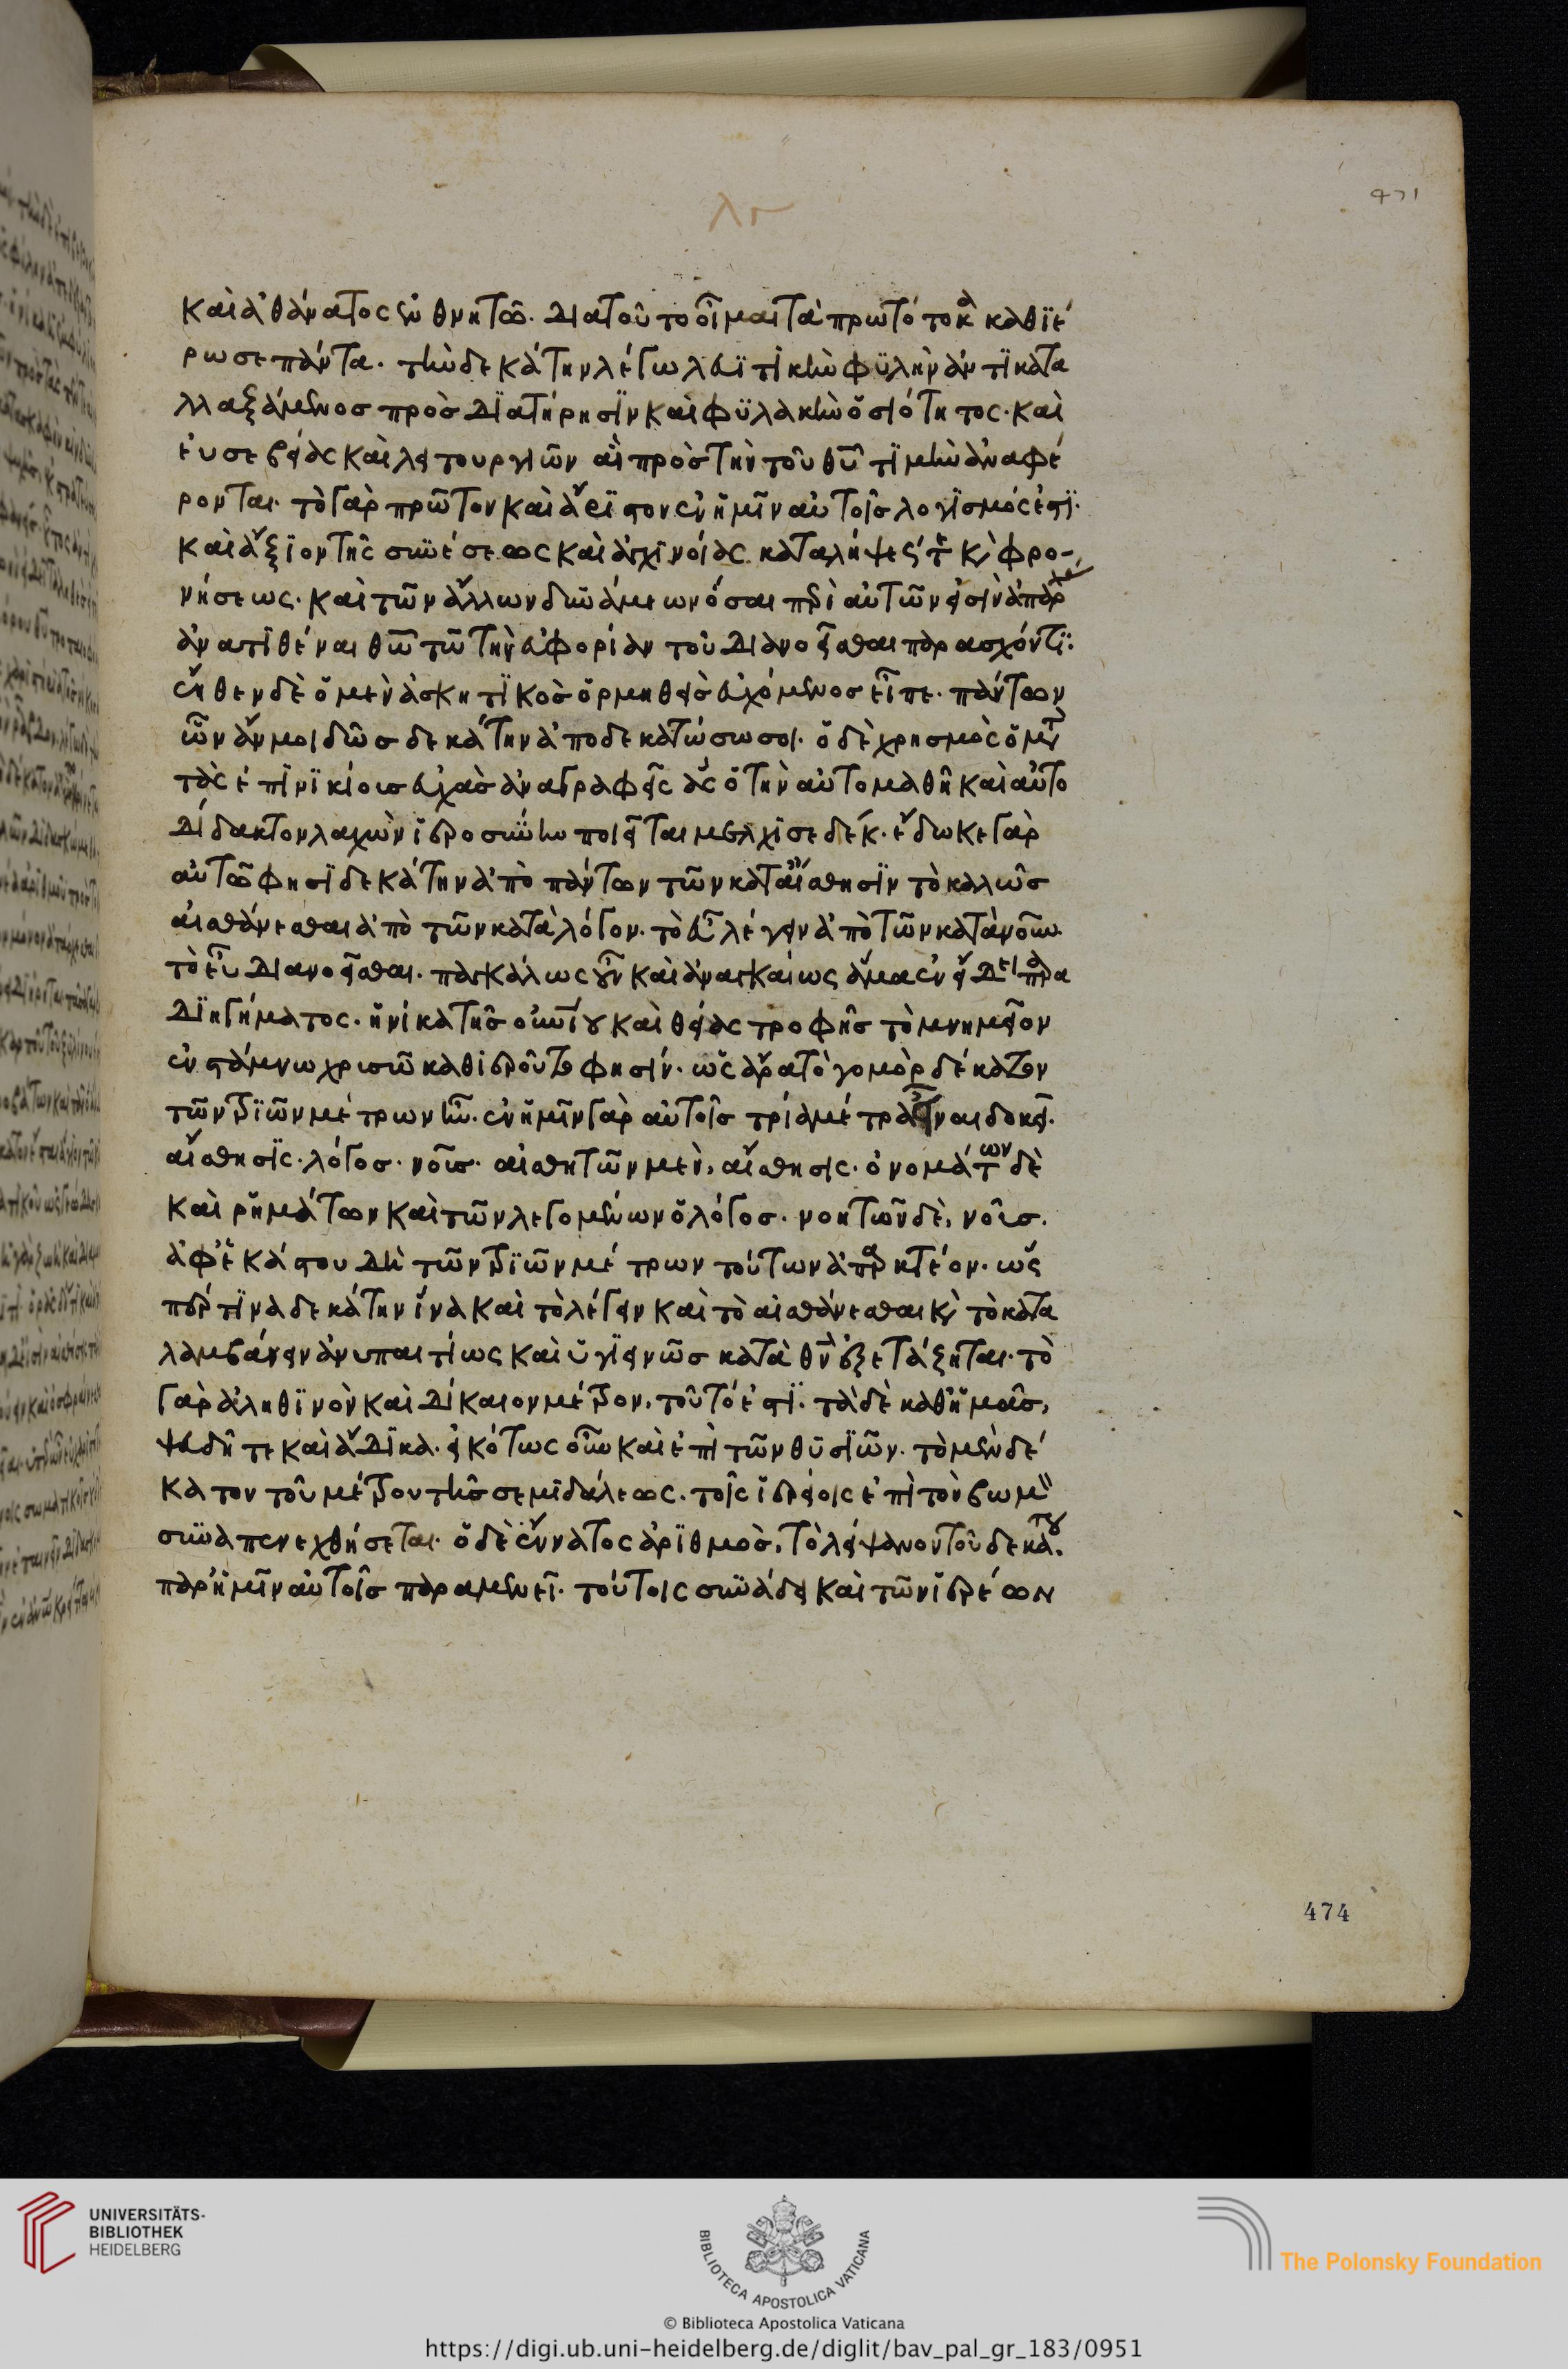 λγ
471
καὶ ἀθάνατος ἐν θνητῶ. διατοῦτο οἶμαι τὰ πρωτότοκα καθϊέ
ρωσε πάντα. τὴν δεκάτην λέγω λευϊτικὴν φϋλὴν ἀντϊκατα
λλαξάμενος πρὸς δϊατήρησϊν καὶ φϋλακὴν ὁσιότητος. καὶ
εὐσεβείας καὶ λειτουργιῶν αἳ πρὸς τὴν τοῦ θῦ τϊμὴν ἀναφέ
ρονται. τὸ γὰρ πρῶτον καὶ ἄρϊστον ἐν ἡμῖν αὐτοῖς λογϊσμός ἐστϊ.
καὶ ἄξϊον τῆς συνέσεως καὶ ἀγχϊνοίας καταλήψεώς τε κ φρο-
νήσεως. καὶ τῶν ἄλλων δυνάμεων ὅσαι περὶ αὐτῶν εἰσὶν ἀπαρ
ἀνατϊθέναι θῶ τῶ τὴν εὐφορίαν τοῦ διανοεῖσθαι παρασχόντϊ.
ἔνθεν δὲ ὁ μὲν ἀσκητϊκὸς ὁρμηθεὶς εὐχόμενος εἶπε. πάντων
ὧν ἄν μοι δῶς δεκάτην ἀποδεκατώσω σοι. ὁ δὲ χρησμὸς ὁ με
τὰς ἐπϊνϊκίοις εὐχὰς ἀναγραφεὶς ἃς ὁ τὴν αὐτομαθῆ καὶ αὐτο
δίδακτον λαχὼν ἱεροσύνην ποιεῖται μελχϊσεδέκ. ἔδωκε γὰρ
αὐτῶ φησϊ δεκάτην ἀπὸ πάντων τῶν κατ αἴσθησϊν τὸ καλῶς
αἰσθάνεσθαι ἀπὸ τῶν κατὰ λόγον. τὸ εὖ λέγειν ἀπὸ τῶν κατὰ νοῦν.
τὸ εὖ διανοεῖσθαι. παγκάλως οὖν καὶ ἀναγκαίως ἅμα ἐν εἴδει παρα
δϊηγήματος. ἡνίκα τῆς οὐνίου καὶ θείας τροφῆς τὸ μνημεῖον
ἐν στάμνω χρυσῶ καθιεροῦτο φησίν. ὡς ἄρα τὸ γομὸρ δέκατον
τῶν τρϊῶν μέτρων ἦν. ἐν ἡμῖν γὰρ αὐτοῖς τρία μέτρα εἶναι δοκεῖ.
αἴσθησϊς. λόγος. νοῦς. αἰσθητῶν μὲν, αἴσθησις. ὀνομάτων δὲ
καὶ ῥημάτων καὶ τῶν λεγομένων ὁ λόγος. νοητῶν δὲ, νοῦς.
ἀφ ἑκάστου δὴ τῶν τρϊῶν μέτρων τούτων ἀπαρκτέον. ὡς
περ τϊνα δεκάτην ἵνα καὶ τὸ λέγειν καὶ τὸ αἰσθάνεσθαι κ τὸ κατα
λαμβάνειν ἀνυπαιτίως καὶ ὑγϊεινῶς κατὰ θν ἐξετάζηται. τὸ
γὰρ ἀληθϊνὸν καὶ δίκαιον μέτρον, τοῦτό ἐστϊ. τὰ δὲ καθ ἡμᾶς,
ψευδῆ τε καὶ ἄδϊκα. εἰκότως οὖν καὶ ἐπὶ τῶν θυσϊῶν. τὸ μὲν δέ
κατον τοῦ μέτρου τῆς σεμϊδάλεως. τοῖς ἱερείοις ἐπὶ τὸν βωμὸν
συναπενεχθήσεται. ὁ δὲ ἔννατος ἀρϊθμὸς, τὸ λείψανον τοῦ δεκάτου.
παρ ἡμῖν αὐτοῖς παραμενεῖ. τούτοις συνάδει καὶ τῶν ἱερέων
474
UNIVERSITÄTS-
BIBLIOTHEK
HEIDELBERG
BIBLIOTECA APOSTOLICA VATICANA
The Polonsky Foundation
© Biblioteca Apostolica Vaticana
https://digi.ub.uni-heidelberg.de/diglit/bav_pal_gr_183/0951